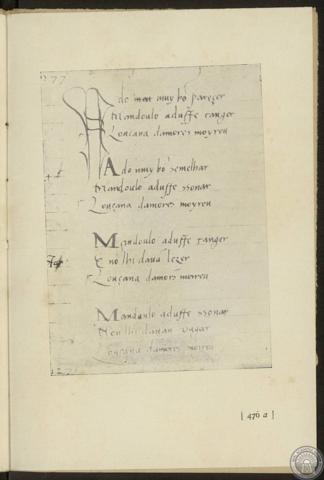 A do mui bõ parezer
Mandoulo aduffe tanger
Louçana damores moyreu
A do muy bõ semelhar
Mandoulo aduffe ssonar
Louçana damores moyreu
Mandoulo aduffe tanger
E nõ lhi dauã lezer
Louçana damors moireu
Mandoulo aduffe ssonar
Nen lhi dauan uagar
Louçana damores moireu
[ 476 a ]